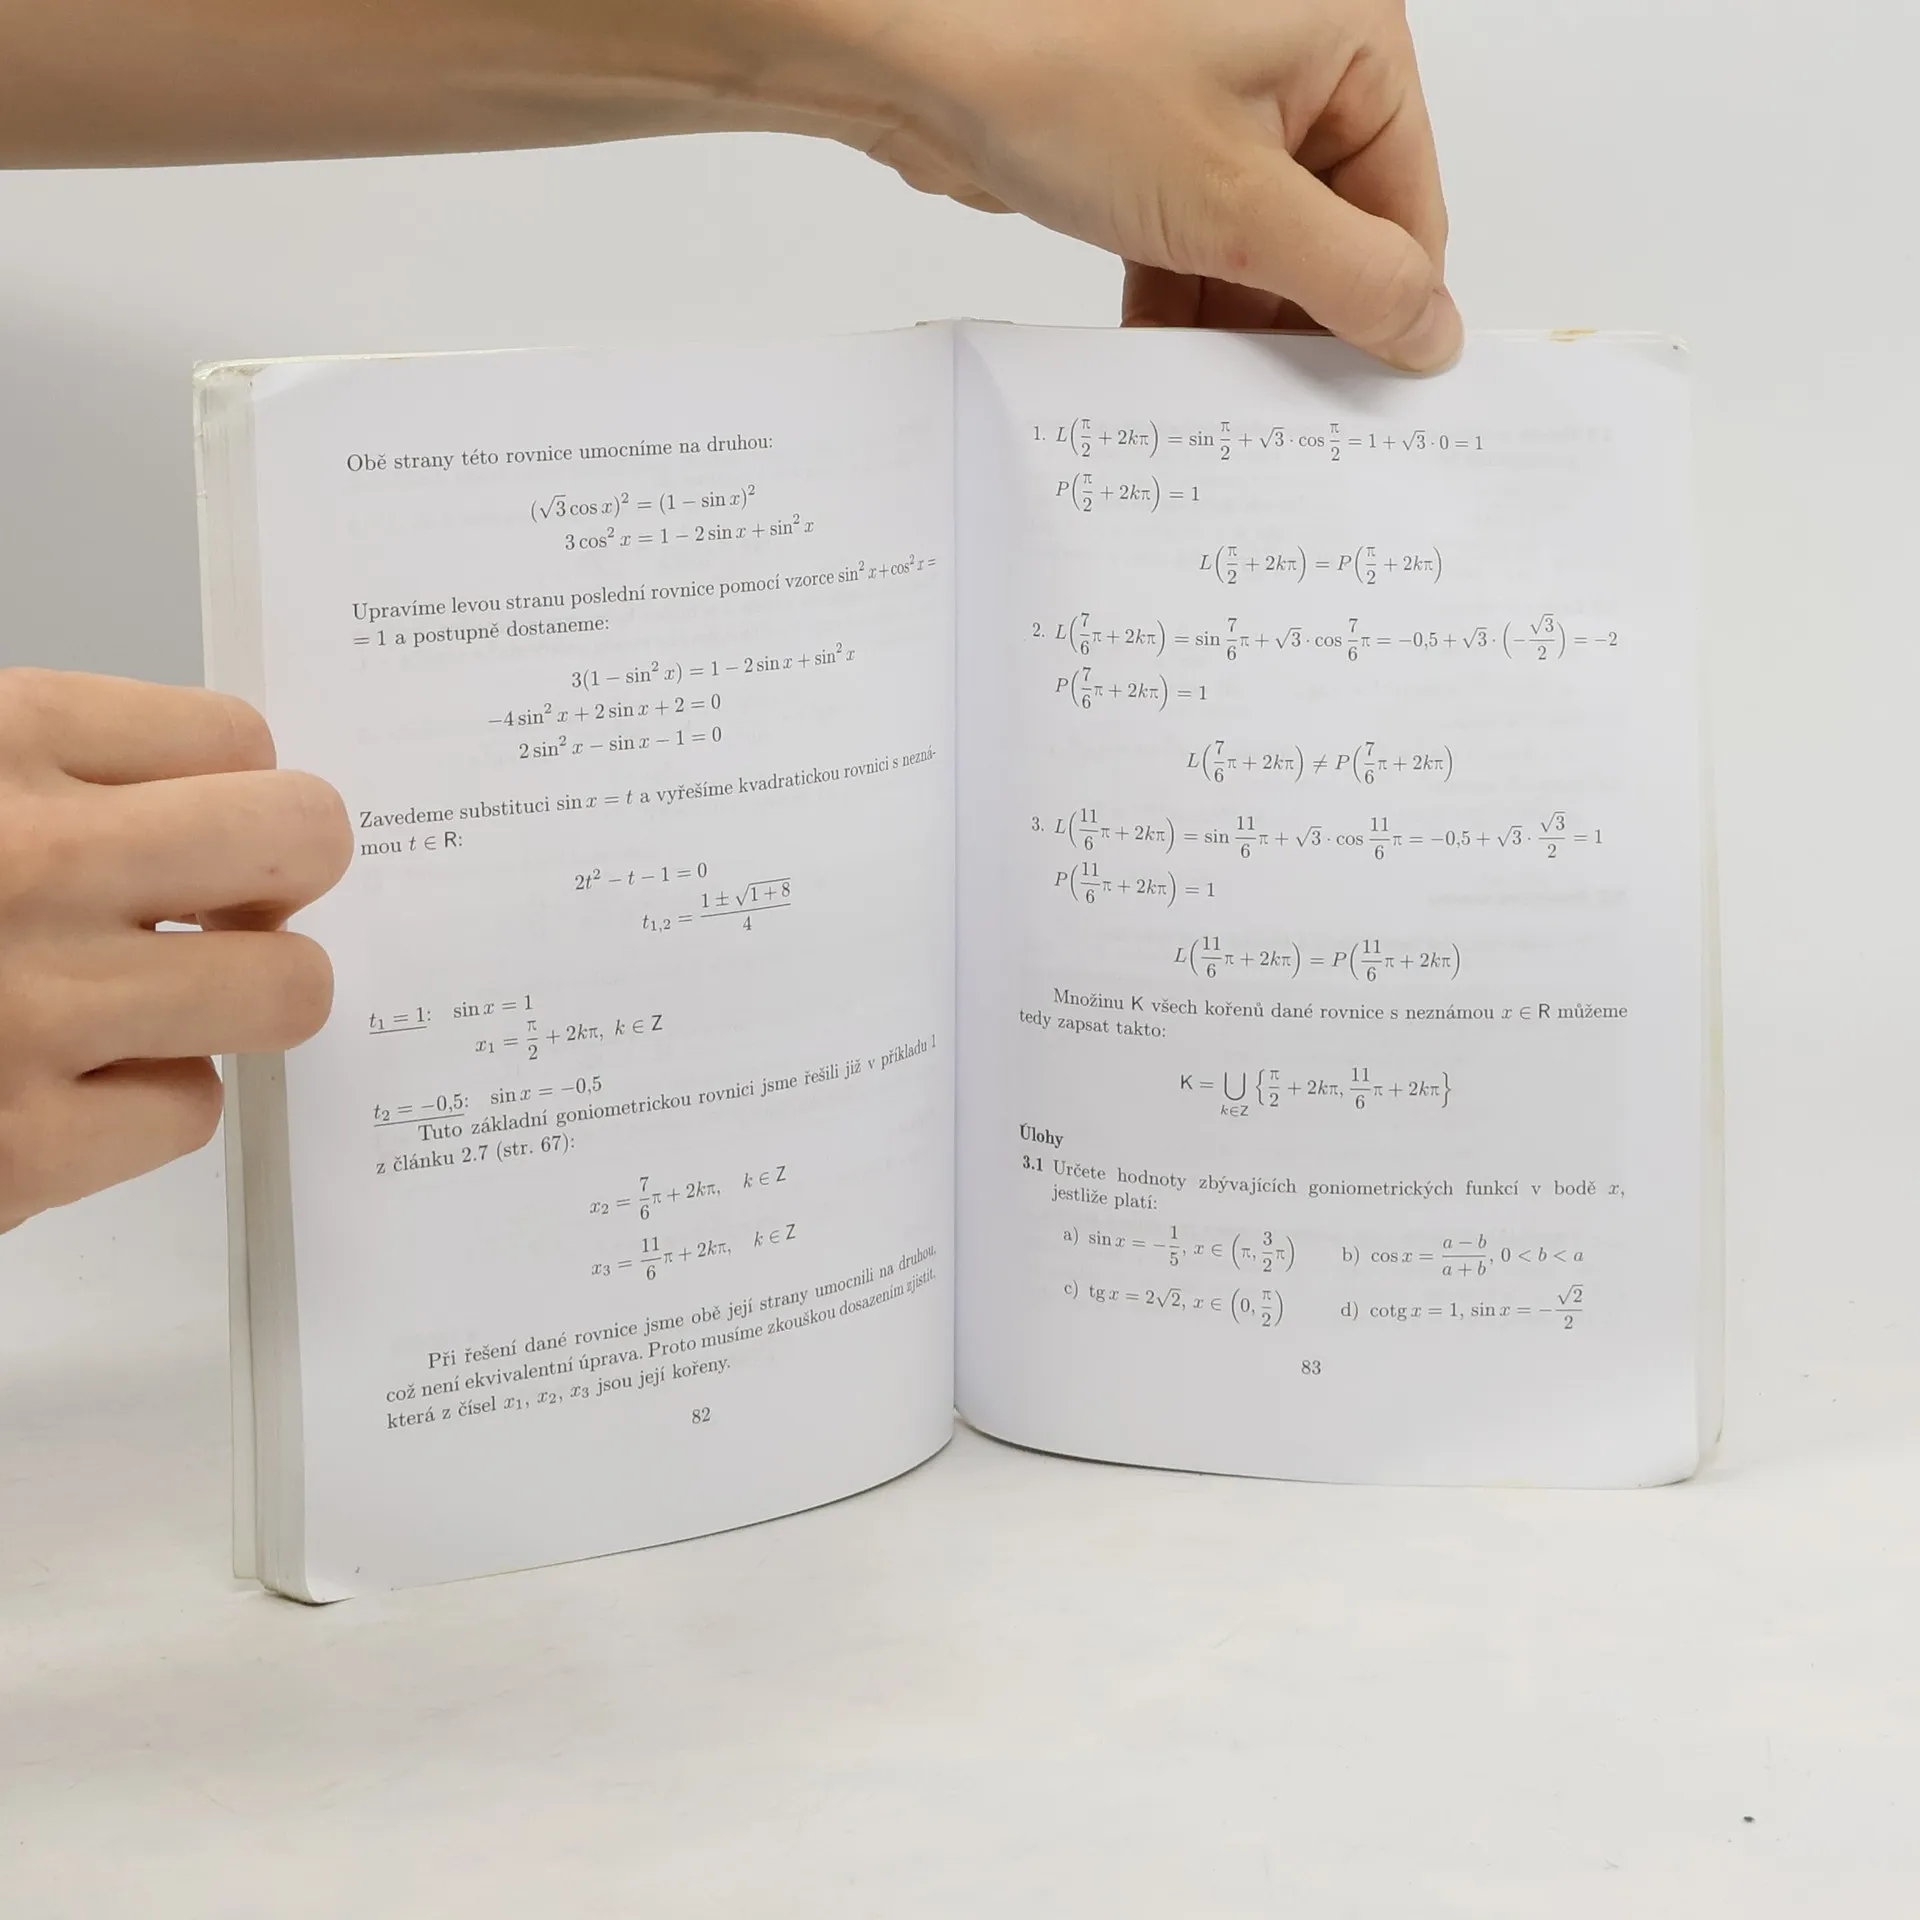 Obě strany této rovnice umocníme na druhou:
(√3 cos x)² = (1 − sin x)²
3 cos² x = 1 − 2 sin x + sin² x
Upravíme levou stranu poslední rovnice pomocí vzorce sin² x+cos² x =
= 1 a postupně dostaneme:
3(1 − sin² x) = 1 − 2 sin x + sin² x
−4 sin² x + 2 sin x + 2 = 0
2 sin² x − sin x − 1 = 0
Zavedeme substituci sin x = t a vyřešíme kvadratickou rovnici s nezná-
mou t ∈ R:
2t² − t − 1 = 0
t₁,₂ = (1 ± √(1 + 8))/4
t₁ = 1: sin x = 1
x₁ = π/2 + 2kπ, k ∈ Z
t₂ = −0,5: sin x = −0,5
Tuto základní goniometrickou rovnici jsme řešili již v příkladu 1
z článku 2.7 (str. 67):
x₂ = 7/6 π + 2kπ, k ∈ Z
x₃ = 11/6 π + 2kπ, k ∈ Z
Při řešení dané rovnice jsme obě její strany umocnili na druhou,
což není ekvivalentní úprava. Proto musíme zkouškou dosazením zjistit,
která z čísel x₁, x₂, x₃ jsou její kořeny.
82
1. L(π/2 + 2kπ) = sin π/2 + √3 · cos π/2 = 1 + √3 · 0 = 1
P(π/2 + 2kπ) = 1
L(π/2 + 2kπ) = P(π/2 + 2kπ)
2. L(7/6 π + 2kπ) = sin 7/6 π + √3 · cos 7/6 π = −0,5 + √3 · (−√3/2) = −2
P(7/6 π + 2kπ) = 1
L(7/6 π + 2kπ) ≠ P(7/6 π + 2kπ)
3. L(11/6 π + 2kπ) = sin 11/6 π + √3 · cos 11/6 π = −0,5 + √3 · √3/2 = 1
P(11/6 π + 2kπ) = 1
L(11/6 π + 2kπ) = P(11/6 π + 2kπ)
Množinu K všech kořenů dané rovnice s neznámou x ∈ R můžeme
tedy zapsat takto:
K = ⋃ k∈Z {π/2 + 2kπ, 11/6 π + 2kπ}
Úlohy
3.1 Určete hodnoty zbývajících goniometrických funkcí v bodě x,
jestliže platí:
a) sin x = −1/5, x ∈ (π, 3/2 π) b) cos x = (a − b)/(a + b), 0 < b < a
c) tg x = 2√2, x ∈ (0, π/2) d) cotg x = 1, sin x = −√2/2
83